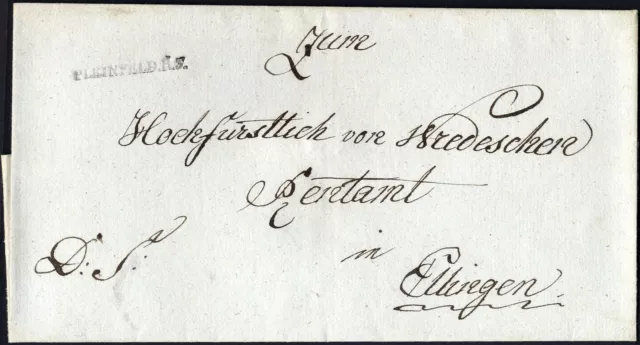 Zum
PLEINFELD.R.3.
Hochfürstlich von Wredeschen
Rentamt
in
D: S:
Ellingen